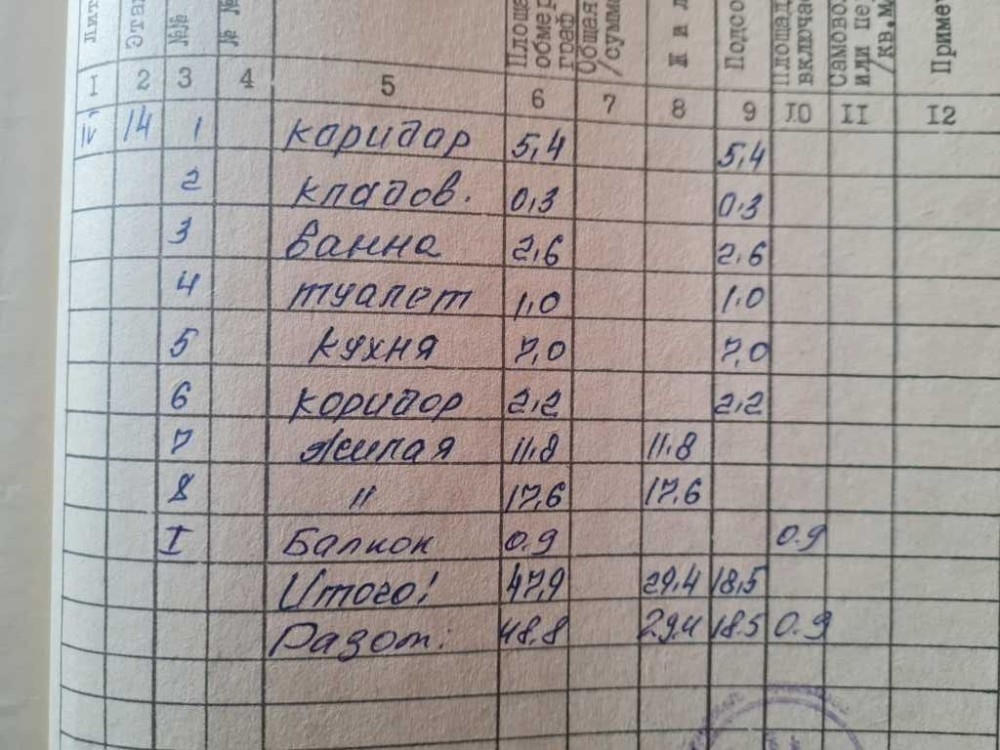 Лит
Эта
№№
№ №
Площ
обмер
граф
Общая
/сумм
Ж и л
Подсо
Площад
включае
Самовол
или пер
/кв.м
Примеч
I 2 3 4 5 6 7 8 9 10 II I2
IV 14 1 коридор 5,4 5,4
2 кладов. 0,3 0,3
3 ванна 2,6 2,6
4 туалет 1,0 1,0
5 кухня 7,0 7,0
6 коридор 2,2 2,2
7 жилая 11.8 11.8
8 " 17,6 17,6
I Балкон 0.9 0.9
Итого! 47,9 29.4 18,5
48.8 29.4 18.5 0.9